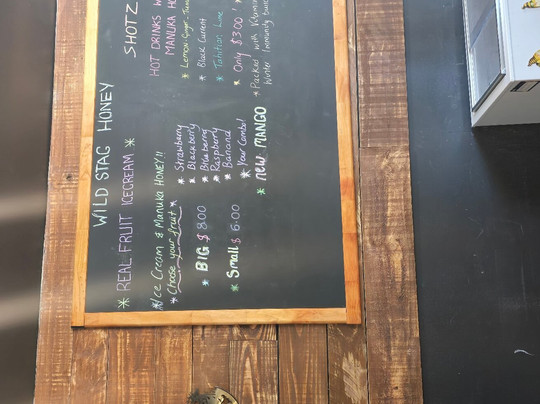 WILD STAG HONEY
* REAL FRUIT ICECREAM *
* Ice Cream & Manuka HONEY!!
* Choose your fruit *
* Strawberry
* Blackberry
* BIG $ 8.00
* Blueberry
* Raspberry
* Banana
* Small $ 6.00
* Your Combo!
* NEW MANGO
SHOTZ
HOT DRINKS W
MANUKA HO
* Lemon Ginger
* Black Currant
* Tahitian Lime
* Only $3.00
* Packed with Vitamin
Winter Immunity